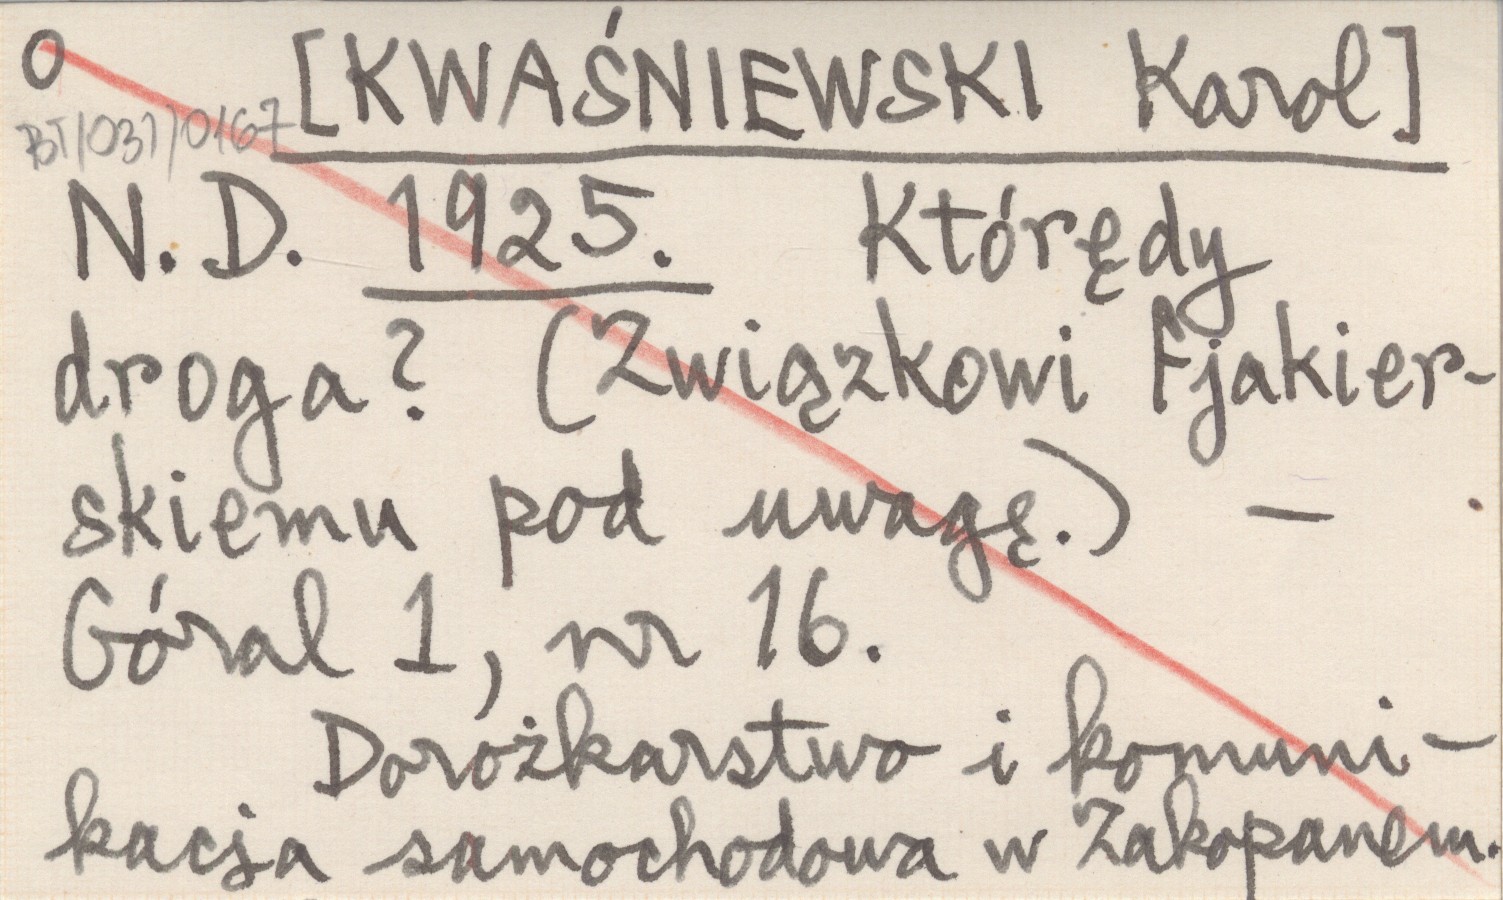 O [KWAŚNIEWSKI Karol]
BT/031/0167
N. D. 1925. Którędy
droga? (Związkowi Fjakier-
skiemu pod uwagę.) —
Góral 1, nr 16.
Dorożkarstwo i komuni-
kacja samochodowa w Zakopanem.